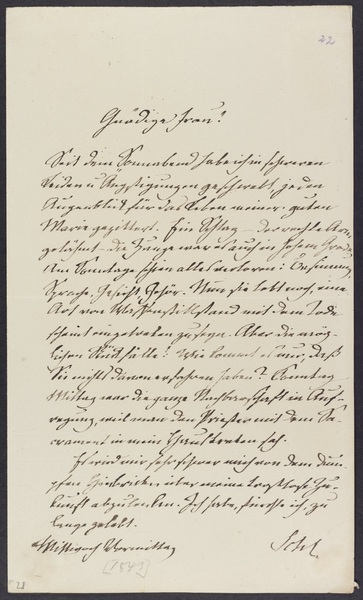 22
Gnädige Frau!
Seit dem Sonnabend habe ich in schweren
Leiden u Ängstigungen geschwebt, jeden
Augenblick für das Leben meiner guten
Marie gezittert. Ein Schlag – der rechte Arm
gelähmt – die Zunge war es auch in hohem Grade.
Am Sonntage schien alles verloren: Besinnung,
Sprache, Gesicht, Gehör. Nun sie lebt noch, eine
Art von Waffenstillstand mit dem Tode
scheint eingetreten zu seyn. Aber die mög-
lichen Rückfälle! Wie kommt es nur, daß
Sie nichts davon erfahren haben? Sonntag
Mittag war die ganze Nachbarschaft in Auf-
regung, weil man den Priester mit dem Sa-
crament in mein Haus treten sah.
Es wird mir sehr schwer mich von dem dum-
pfen Hinbrüten über meine trostlose Zu-
kunft abzulenken. Ich habe, fürchte ich, zu
lange gelebt.
Mittwoch Vormittag
Schl.
[1843]
28